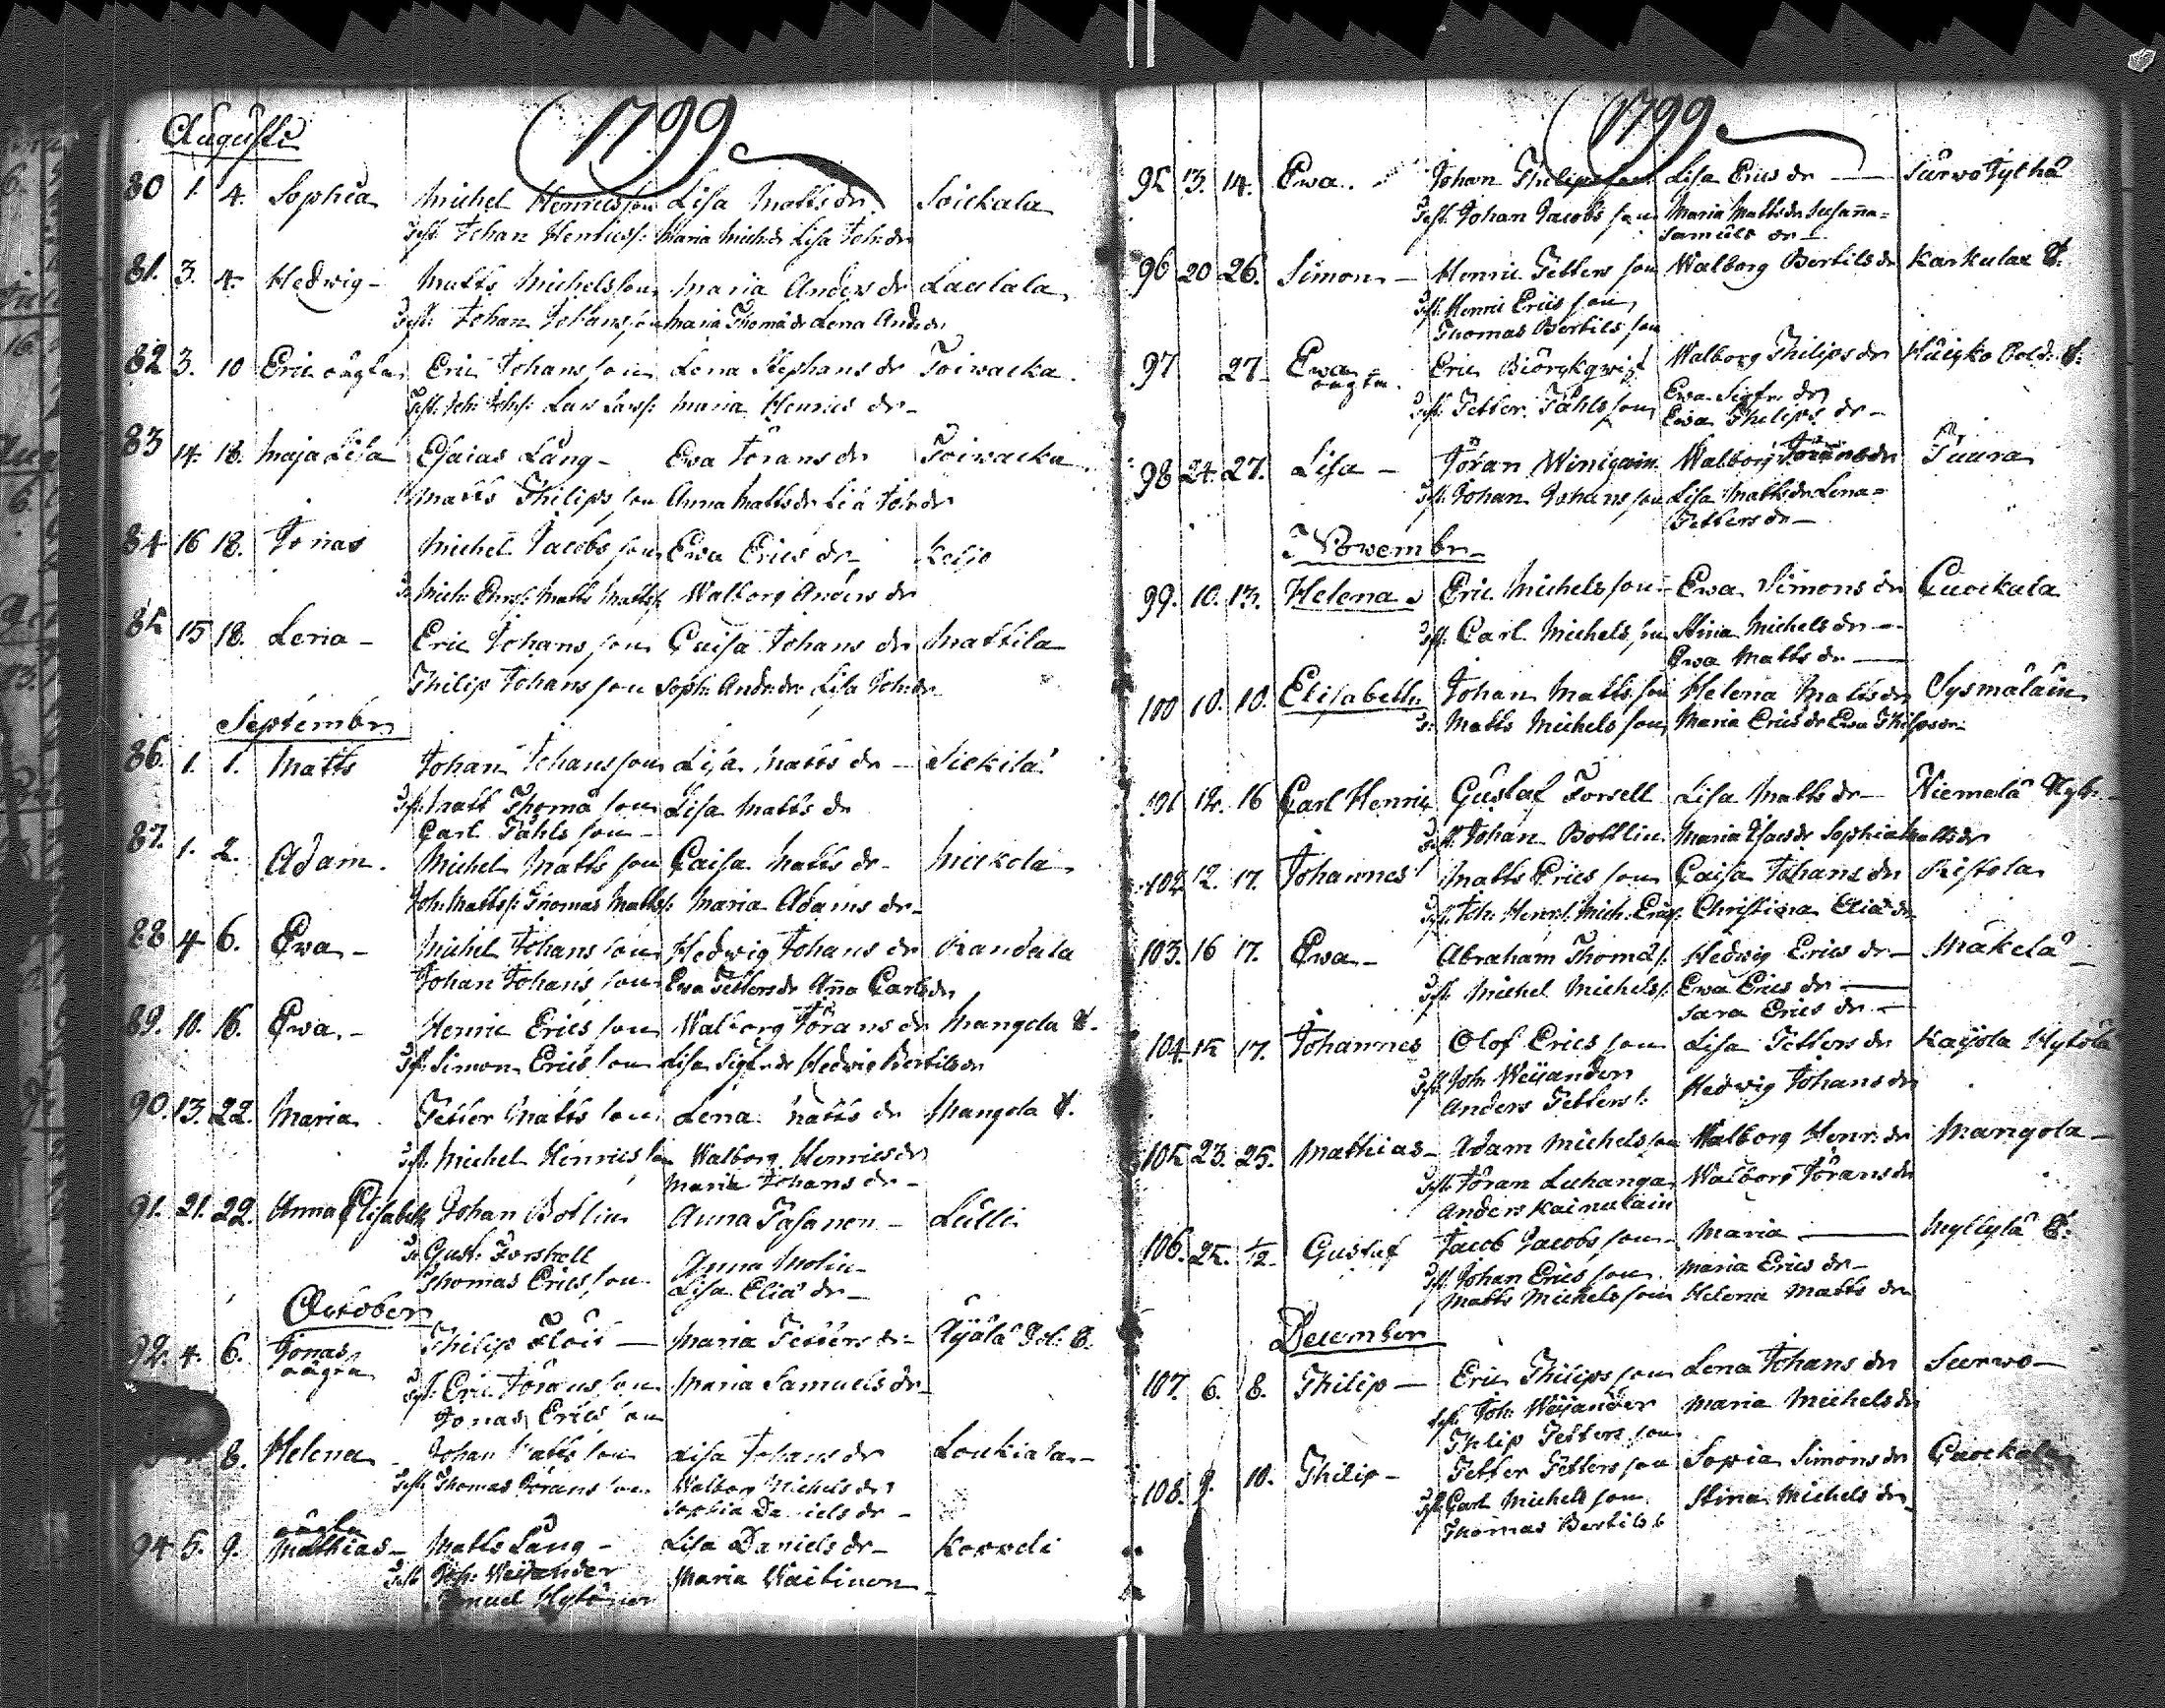 Augusti
1799
80 1. 4. Sophia Michel Henricsson Lisa Matts dr. Soickala
Test. Johan Henricss: Maria Mich:dr Lisa Joh:dr
81. 3. 4. Hedwig - Matts Michelsson Maria Anders dr Laulala
Test: Johan Johansson Maria Thomædr Lena And:dr
82 3. 10 Eric oägta Eric Johansson Lena Stephans dr Toiwacka.
Test: Joh: Johs: Lars Larss: Maria Henrics dr -
83 14. 18. Maja Lisa Esaias Lång - Ewa Jörans dr Toiwacka
Matts Philips son Anna Matts dr Lisa Joh:dr
84 16 18. Jonas Michel Jacobs son Ewa Erics dr - Keljo
Mich: Ericss: Matts Mattss: Walborg Anders dr
85 15 18. Lena - Eric Johans son Caisa Johans dr Mattila
Philip Johans son Soph: And:dr Lisa Joh:dr
September
86. 1. 1. Matts Johan Johansson Lisa Matts dr -
Test: Matt Thomæ son Lisa Matts dr
Carl Påhls son -
87. 1. 2. Adam. Michel Matts son Caisa Matts dr - Nickola
Joh: Mattss: Thomas Mattss: Maria Adams dr -
88 4 6. Ewa - Michel Johans son Hedwig Johans dr Randala
Johan Johans son Ewa Petters dr Aña Carls dr
89. 10. 16. Ewa. - Henric Erics son Walborg Jörans dr Mangola
Test: Simon Erics son Lisa Sigfr:dr Hedwig Bertils dr
90. 13. 22. Maria. Petter Matts son Lena Matts dr Mangola
Test. Michel Henrics son Walborg Henrics dr
Maria Johans dr -
91. 21. 22. Anna Elisabeth Johan Bottlin Anna Pasanen - Lulli
Gust: Forssell Anna Molin
Thomas Erics son Lisa Eliæ dr -
October
92. 4. 6. Jonas oägta Philip Floit - Maria Petters dr -
Test: Eric Jörans son Maria Samuels dr -
Jonas Erics son
8. Helena - Johan Matts son Lisa Johans dr Loukiala -
Test: Thomas Jörans son Walborg Michels dr
Sophia Daniels dr -
94 5. 9. oägta Mathias - Matts Lång - Lisa Daniels dr - Korpela
Test Joh: Weijander Maria Waitinen
Samuel Hytönen
1799
95 13. 14. Ewa. Johan Philipsson Lisa Erics dr - Surwo Jylhä
Test. Johan Jacobs son Maria Matts dr Susaña =
Samuels dr -
96 20 26. Simon - Henric Petters son Walborg Bertils dr Karkulax
Test. Henric Erics son
Thomas Bertils son
97 27. Ewa - oägta. Eric Biörckqwist Walborg Philips dr
Test. Petter Påhls son Ewa Sigfr: dr
Ewa Philips dr -
98 24. 27. Lisa - Jöran Minigain Walborg Jörans dr Puura
Test. Johan Johans son Lisa Matts dr Lena =
Petters dr -
November
99. 10. 13. Helena Eric Michels son - Ewa Simons dr Cuockala
Test. Carl Michels son Stina Michels dr -
Ewa Matts dr -
100 10. 10. Elisabeth. Johan Matts son Helena Matts dr Sysmäläin
Matts Michels son Maria Erics dr Ewa Philips dr.
101 12. 16 Carl Henric Gustaf Forsell Lisa Matts dr - Niemelä Nyb.
Test. Johan Bottlin. Maria Esaiæ dr Sophia Matts dr
102 12. 17. Johannes Matts Erics son Caisa Johans dr Ristola
Test. Joh: Henrs: Mich: Ericss: Christina Eliæ dr
103. 16 17. Ewa - Abraham Thomæs: Hedwig Erics dr - Mäkelä -
Test. Michel Michelss: Ewa Erics dr -
Sara Erics dr. -
104. 15 17. Johannes Olof Erics son Lisa Petters dr Kaijola Hytölä
Test. Joh: Weijander
Anders Petterss: Hedwig Johans dr
105 23. 25. Mathias - Adam Michelsson Walborg Henr: dr Mangola -
Test. Jöran Luhanga Walborg Jörans dr
Anders Kainulain
106. 25. 1/12. Gustaf Jacob Jacobs son - Maria - Myllylä
Test. Johan Erics son. Maria Erics dr -
Matts Michels son Helena Matts dr
December
107. 6. 8. Philip - Eric Philips son Lena Johans dr Surwo -
Test. Joh: Weijander Maria Michels dr
Philip Petters son
108. 9. 10. Philip - Petter Petters son Sopia Simons dr Cuockala
Test. Carl Michels son. Stina Michels dr
Thomas Bertils s